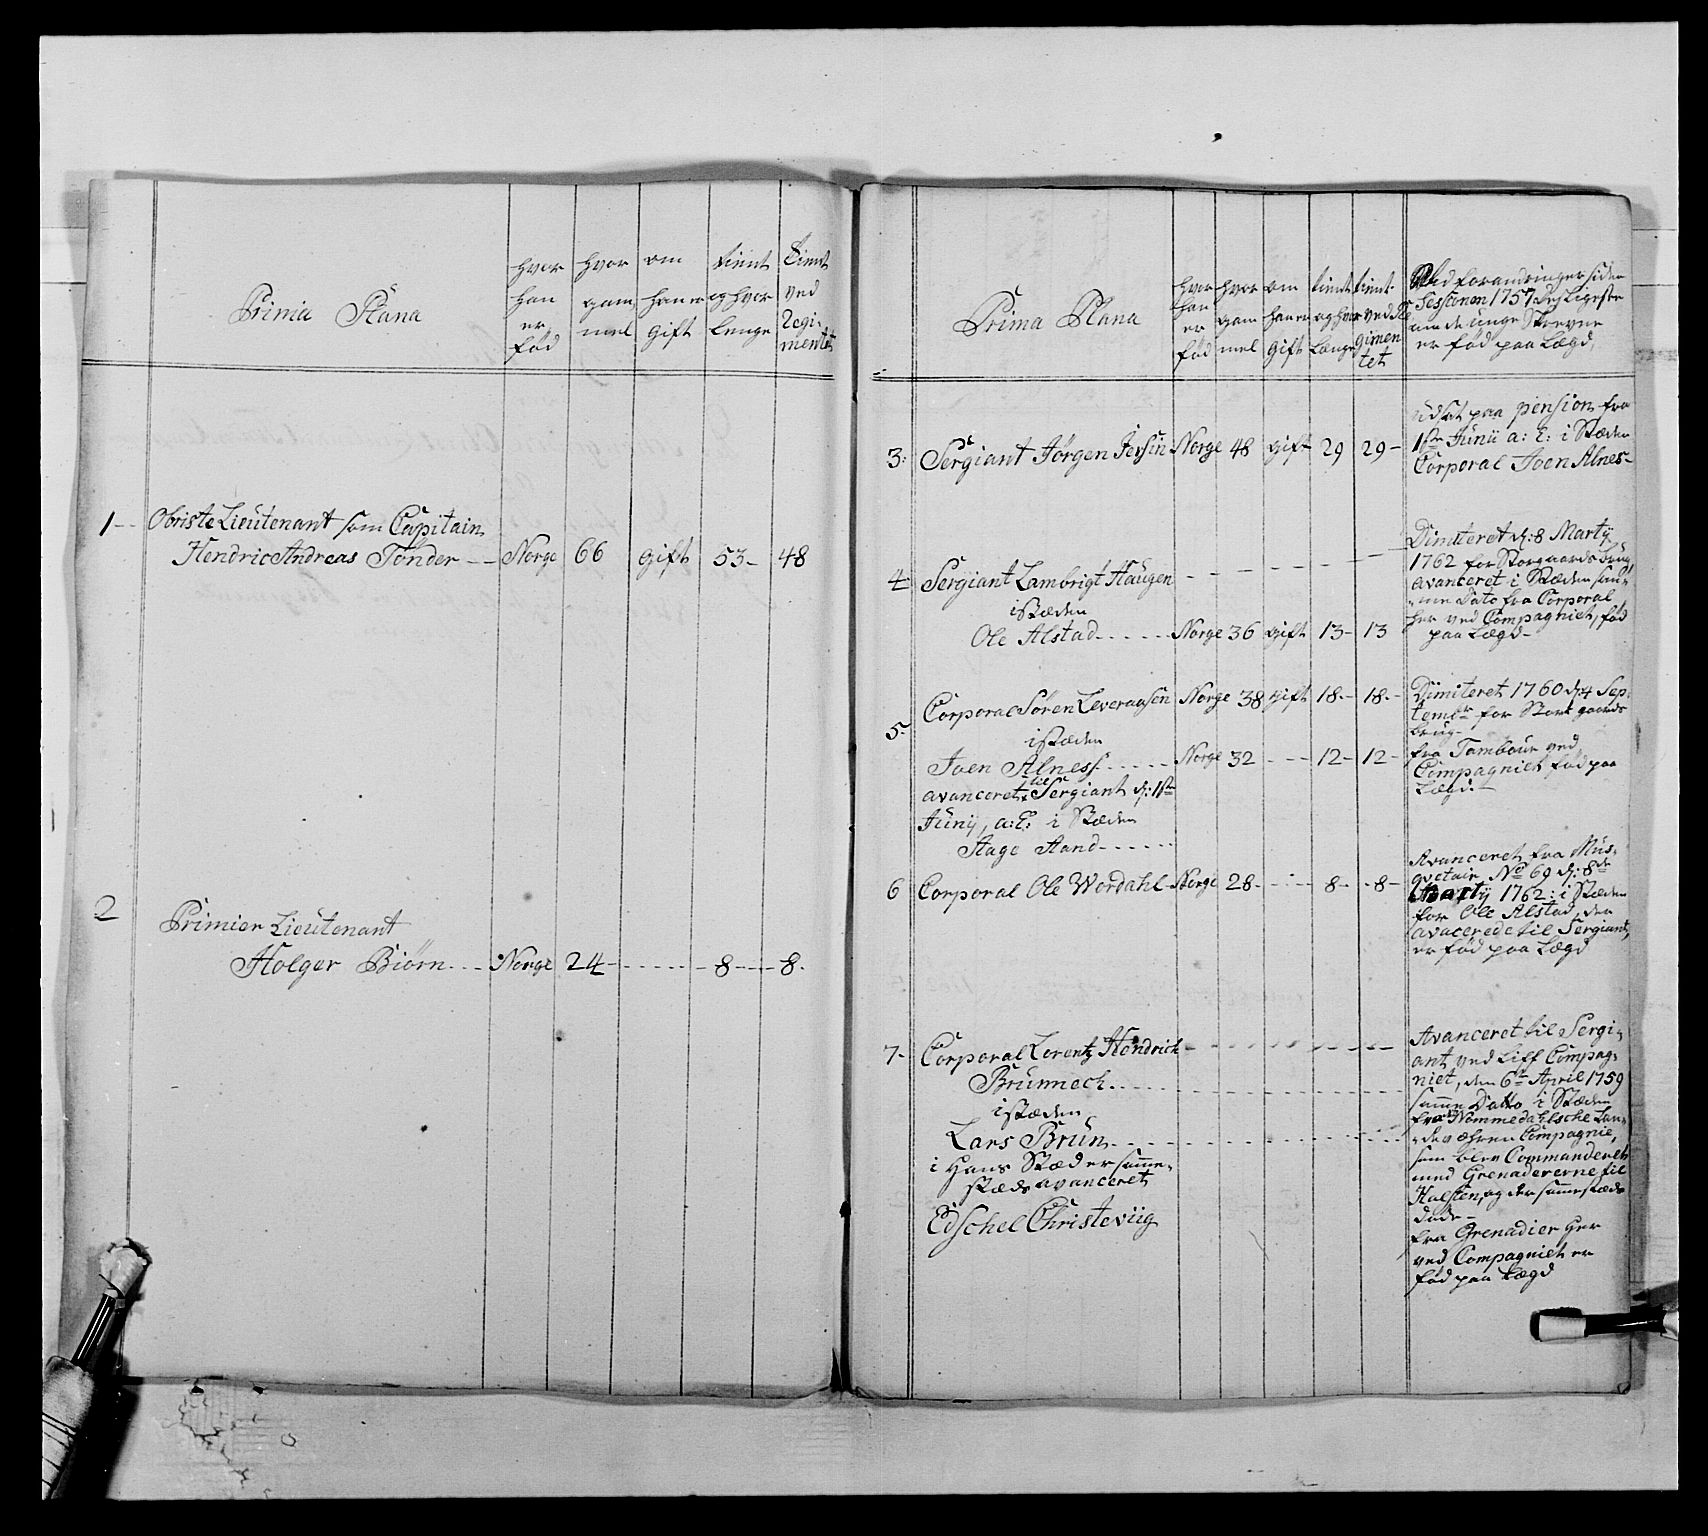 Primia Plana
hvor han er fød
hvor gam mel
om han er gift
tient og hvor lenge
tient ved Regi- mentet
1-- Obriste Lieutenant som Capitain
Hendric Andreas Tønder -- Norge 66 gift 53- 48
2 Primier Lieutenant
Holger Biørn --- Norge 24 - - - - - 8 - - - 8.
Prima Plana
hvor han er fød
hvor gam mel
om han er gift
tient og hvor Længe
tient ved Re gimen tet
Ved forandringer siden
Sessionen 1757 des Ligeste
om de unge Skrevne
er fød paa Lægd,
3: Sergiant Jørgen Jersin Norge 48 gift 29 29-
udsat paa pension fra
1ste Junii a: C: i Stæden
Corporal Joen Alnes-
4 Sergiant Lambrigt Haugen
i Stæden
Ole Alstad ..... Norge 36 gift 13- 13
Dimiteret d: 8 Marty
1762 for Storgaards brug,
avanceret i Stæden sam-
me Dato fra Corporal
her ved Compagniet, fød
paa Lægd-
5. Corporal Søren Leveraasen Norge 38 gift 18.- 18.-
i Stæden
Joen Alness ..... Norge 32 - - - 12- 12-
avanceret til Sergiant d: 1ste
Junij, a: C: i Stæden
Aage Aand ......
Dimiteret 1760 d: 4 Sep-
tembr for Stort gaards
brug-
fra Tambour ved
Compagniet fød paa
Lægd.-
6 Corporal Ole Wordahl - Norge 28 - - - 8 - - 8 -
Avanceret fra Mus-
qvetair No 69 d: 8de
Martij 1762: i Stæden
for Ole Alstad, den
avacerede til Sergiant,
er fød paa Lægd
7- Corporal Lorentz Hendrich
Brunnech
i Stæden
Lars Brun
i Hans Stæd er samme-
stæds avanceret
Edschel Christeviig
Avanceret til Sergi-
ant ved Liff Compag-
niet, den 6te April 1759
samme Datto i Stæden
fra Nommedahlsche Lan-
deværen Compagnie,
som blev Commanderet
med Grenadererne til
Holsten, og der sammestæds
døde-
fra Grenadier her
ved Compagniet er
fød paa Lægd